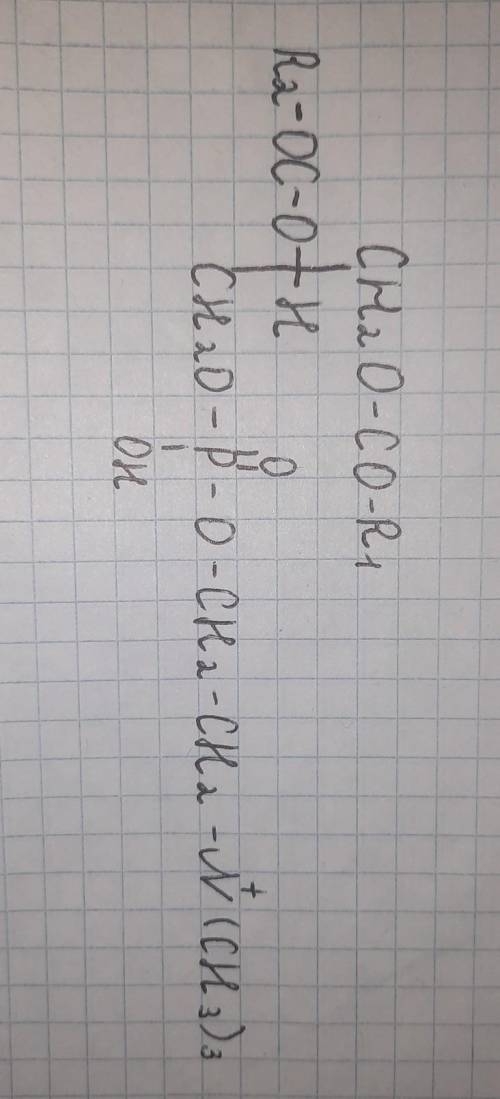 CH2O-CO-R1
R2-OC-O-H
O
CH2O-P-O-CH2-CH2-N+(CH3)3
OH